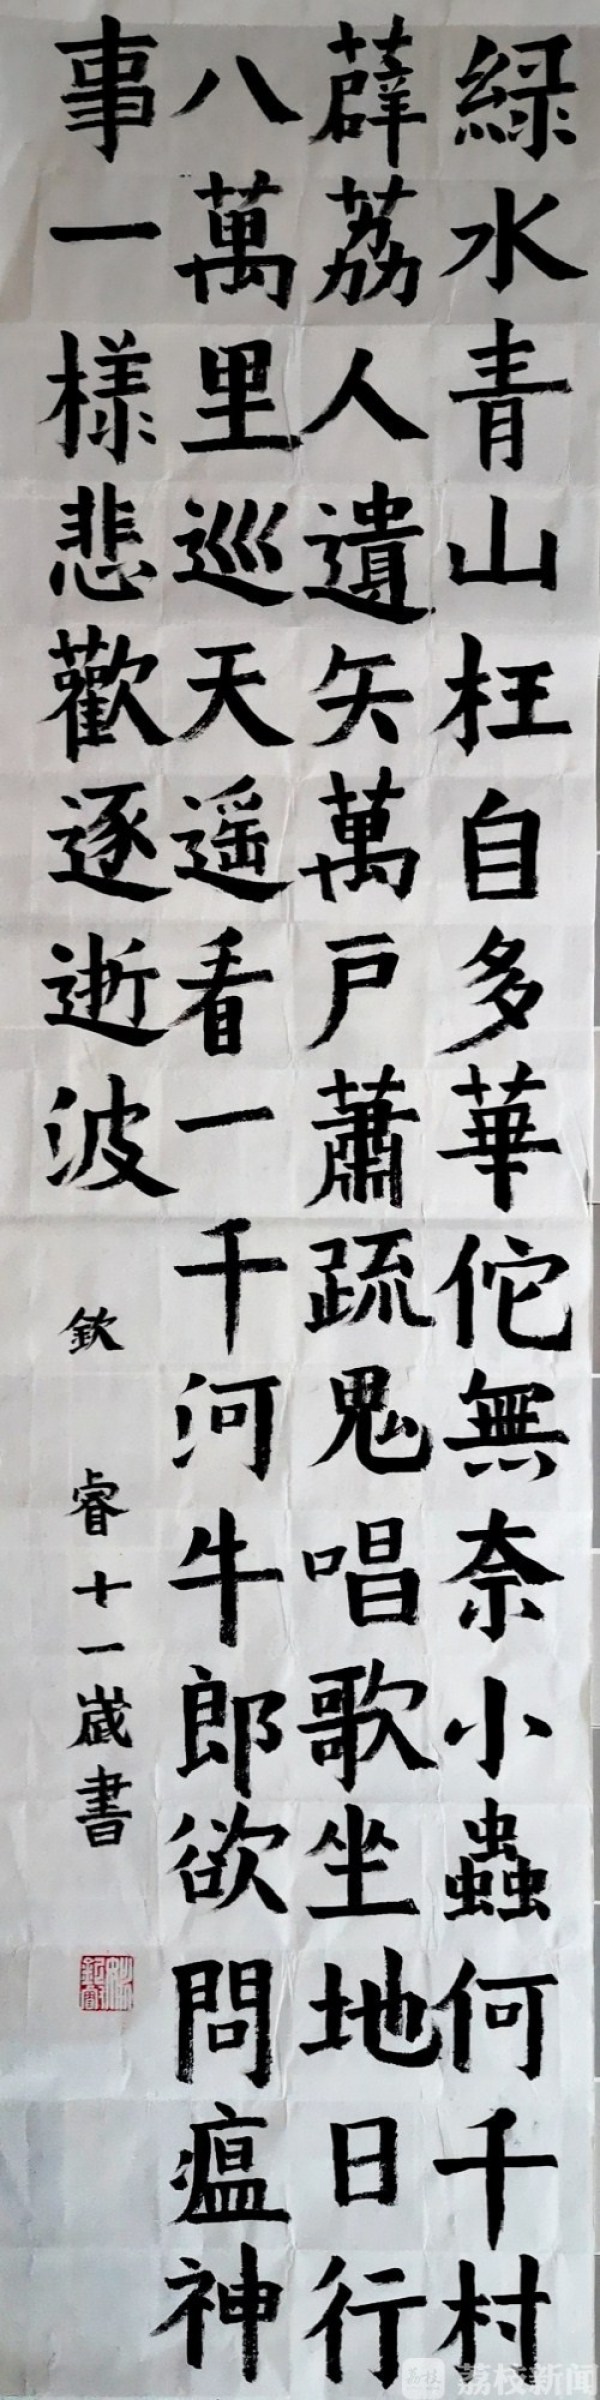 綠水青山枉自多華佗無奈小蟲何千村
薜荔人遺矢萬戶蕭疏鬼唱歌坐地日行
八萬里巡天遥看一千河牛郎欲問瘟神
事一樣悲歡逐逝波
欽睿十一歲書
荔枝新闻